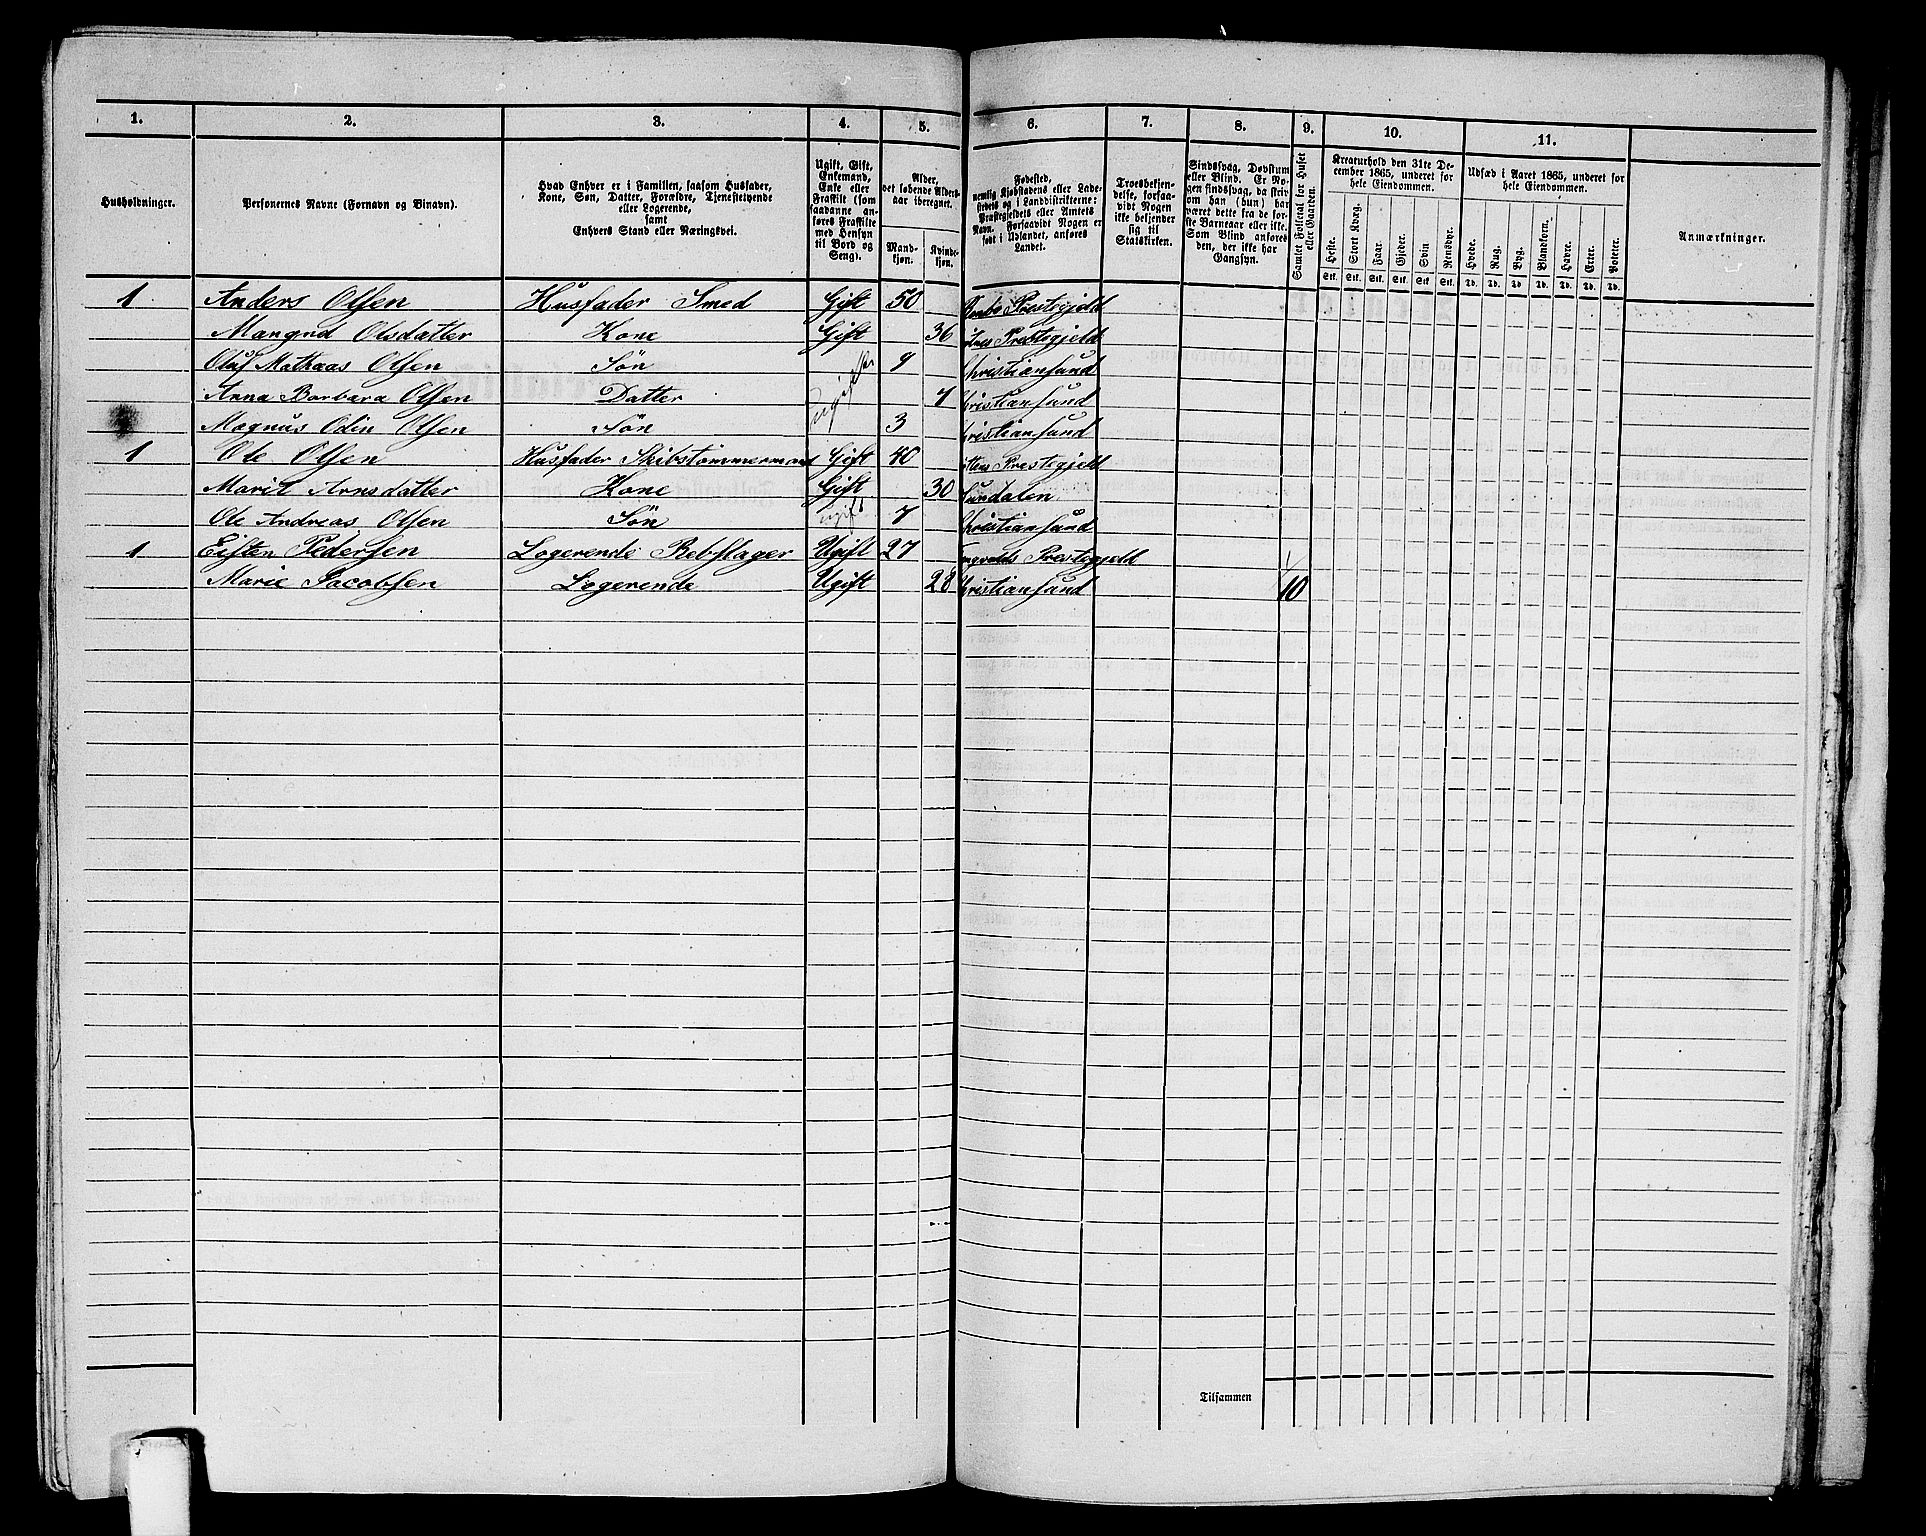 1. 2. 3. 4. 5. 6. 7. 8. 9. 10. 11.
Husholdninger.
Personernes Navne (Fornavn og Binavn).
Hvad Enhver er i Familien, saasom Husfader,
Kone, Søn, Datter, Forældre, Tjenestetyende
eller Logerende,
samt
Enhvers Stand eller Næringsvei.
Ugift, Gift,
Enkemand,
Enke eller
Fraskilt (som
saadanne an-
føres Fraskilte
med Hensyn
til Bord og
Seng).
Alder,
det løbende Alders-
aar iberegnet.
Mand-
kjøn.
Kvinde-
kjøn.
Fødested,
nemlig Kjøbstadens eller Lade-
stedets og i Landdistrikterne:
Præstegjeldets eller Amtets
Navn. Forsaavidt Nogen er
født i Udlandet, anføres
Landet.
Troesbekjen-
delse, forsaa-
vidt Nogen
ikke bekjender
sig til
Statskirken.
Sindssvag, Døvstum
eller Blind. Er No-
gen sindssvag, da skriv
om han (hun) har
været dette fra de før-
ste Barneaar eller ikke.
Som Blind anføres
den, der ikke har
Gangsyn.
Samlet Folketal for Huset
eller Gaarden.
Kreaturhold den 31te De-
cember 1865, underet for
hele Eiendommen.
Heste. Stort Kvæg. Faar. Gjeder. Svin Rensdyr.
Stk. Stk. Stk. Stk. Stk Stk.
Udsæd i Aaret 1865, underet for
hele Eiendommen.
Hvede. Rug. Byg. Blandkorn. Havre. Erter. Poteter.
Td. Td. Td Td. Td. Td. Td.
Anmærkninger.
1 Anders Olsen Husfader Smed Gift 50 Præstegjeld
Mangnd Olsdatter Kone Gift 36 Prestegjeld
Oluf Mathæas Olsen Søn ugifte 9 Christiansund
Anna Barbara Olsen Datter 7 Christiansund
Magnus Odin Olsen Søn 3 Christiansund
1 Ole Olsen Husfader Skibstømmermand Gift 40 Prestegjeld
Marit Arnsdatter Kone Gift 30 Sundalen
Ole Andreas Olsen Søn ugift 7 Christiansund
1 Eisten Pedersen Logerende Rebslager Ugift 27 Prestegjeld
Marie Jacobsen Logerende Ugift 28 Christiansund 10
Tilsammen